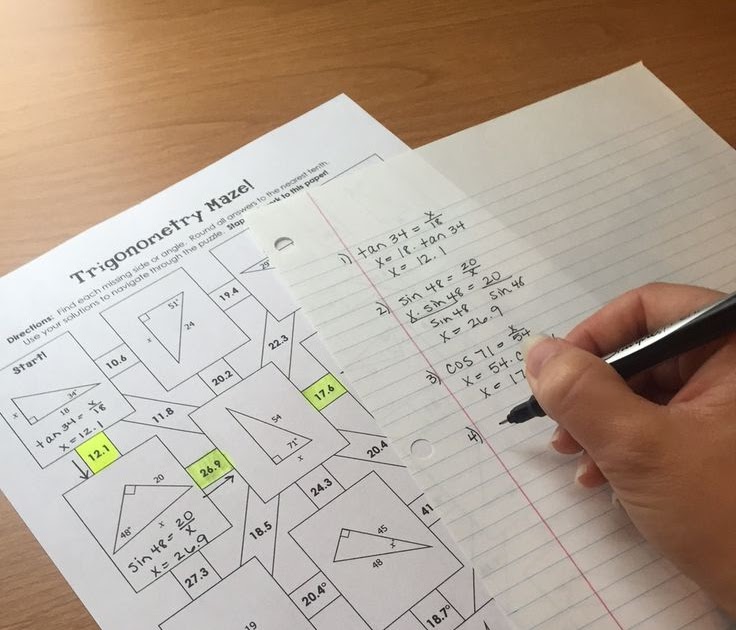 Trigonometry Maze!
Directions: Find each missing side or angle. Round all answers to the nearest tenth.
Use your solutions to navigate through the puzzle.
to this paper!
Start!
34°
18
x
tan 34 = x/18
x = 12.1
12.1
10.6
11.8
51°
24
x
19.4
20.2
22.3
54
71°
x
17.6
20
48°
x
sin 48 = 20/x
x = 26.9
26.9
27.3
18.5
24.3
20.4
41
45
x
48
20.4°
18.7°
19
1) tan 34 = x/18
x = 18 · tan 34
x = 12.1
2) sin 48 = 20/x
x · sin 48 = 20
sin 48 sin 48
x = 26.9
3) cos 71 = x/54
x = 54 ·
x = 17
4)